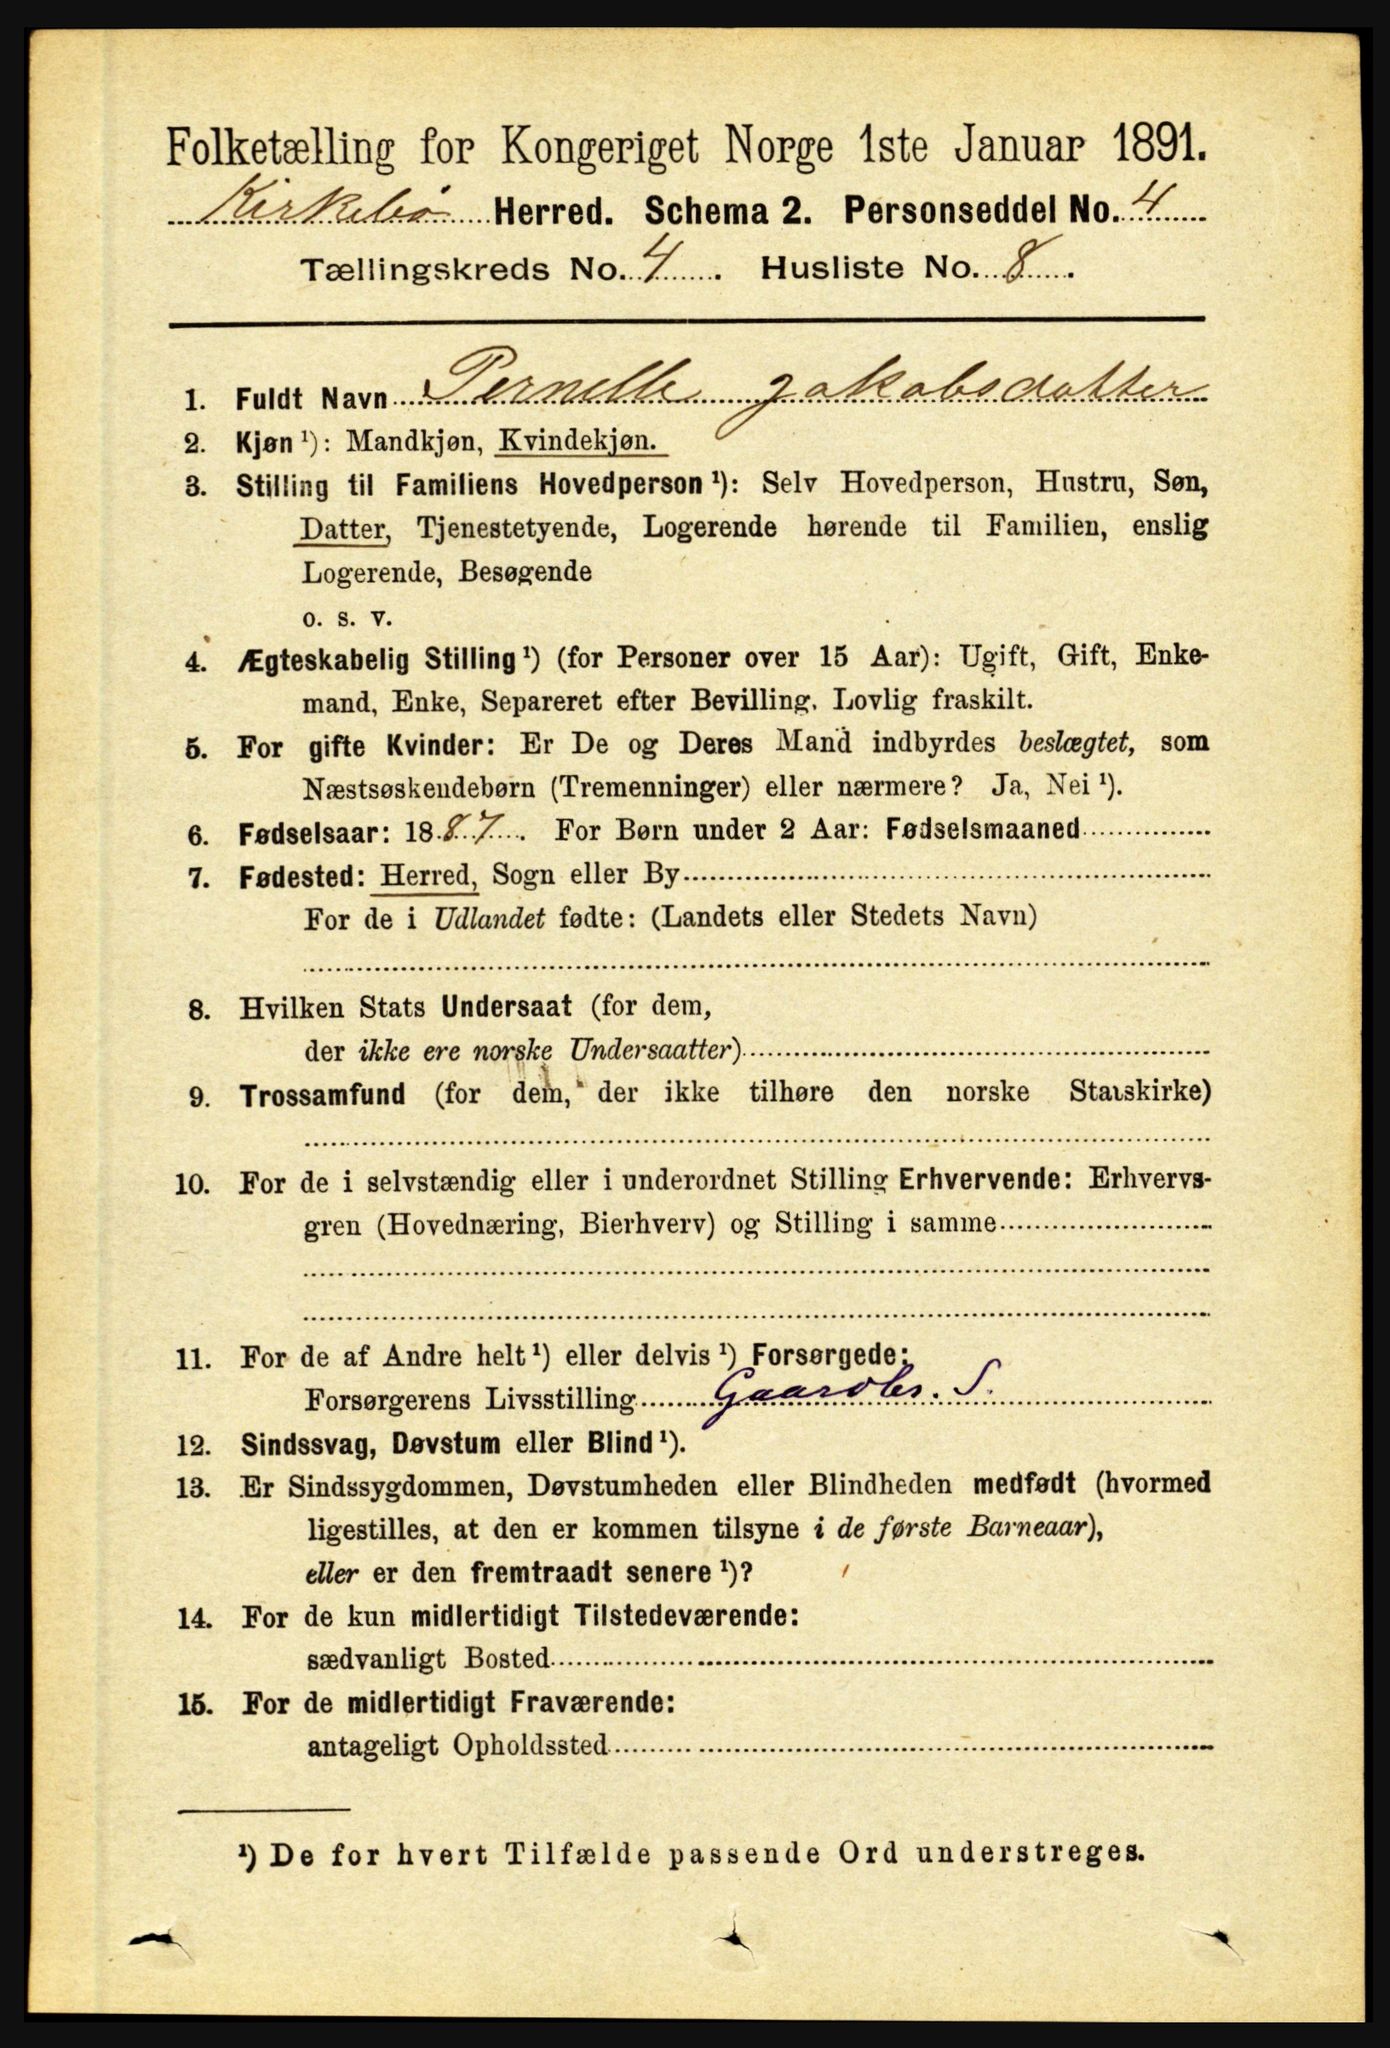 Folketælling for Kongeriget Norge 1ste Januar 1891.
Kirkebø Herred. Schema 2. Personseddel No. 4
Tællingskreds No. 4. Husliste No. 8.
1. Fuldt Navn Pernelle Jakobsdatter
2. Kjøn ¹): Mandkjøn, Kvindekjøn.
3. Stilling til Familiens Hovedperson ¹): Selv Hovedperson, Hustru, Søn,
Datter, Tjenestetyende, Logerende hørende til Familien, enslig
Logerende, Besøgende
o. s. v.
4. Ægteskabelig Stilling ¹) (for Personer over 15 Aar): Ugift, Gift, Enke-
mand, Enke, Separeret efter Bevilling. Lovlig fraskilt.
5. For gifte Kvinder: Er De og Deres Mand indbyrdes beslægtet, som
Næstsøskendebørn (Tremenninger) eller nærmere? Ja, Nei ¹).
6. Fødselsaar: 1887. For Børn under 2 Aar: Fødselsmaaned
7. Fødested: Herred, Sogn eller By
For de i Udlandet fødte: (Landets eller Stedets Navn)
8. Hvilken Stats Undersaat (for dem,
der ikke ere norske Undersaatter)
9. Trossamfund (for dem, der ikke tilhøre den norske Statskirke)
10. For de i selvstændig eller i underordnet Stilling Erhvervende: Erhvervs-
gren (Hovednæring, Bierhverv) og Stilling i samme
11. For de af Andre helt ¹) eller delvis ¹) Forsørgede:
Forsørgerens Livsstilling Gaardbr. S.
12. Sindssvag, Døvstum eller Blind ¹).
13. Er Sindssygdommen, Døvstumheden eller Blindheden medfødt (hvormed
ligestilles, at den er kommen tilsyne i de første Barneaar),
eller er den fremtraadt senere ¹)?
14. For de kun midlertidigt Tilstedeværende:
sædvanligt Bosted
15. For de midlertidigt Fraværende:
antageligt Opholdssted
¹) De for hvert Tilfælde passende Ord understreges.